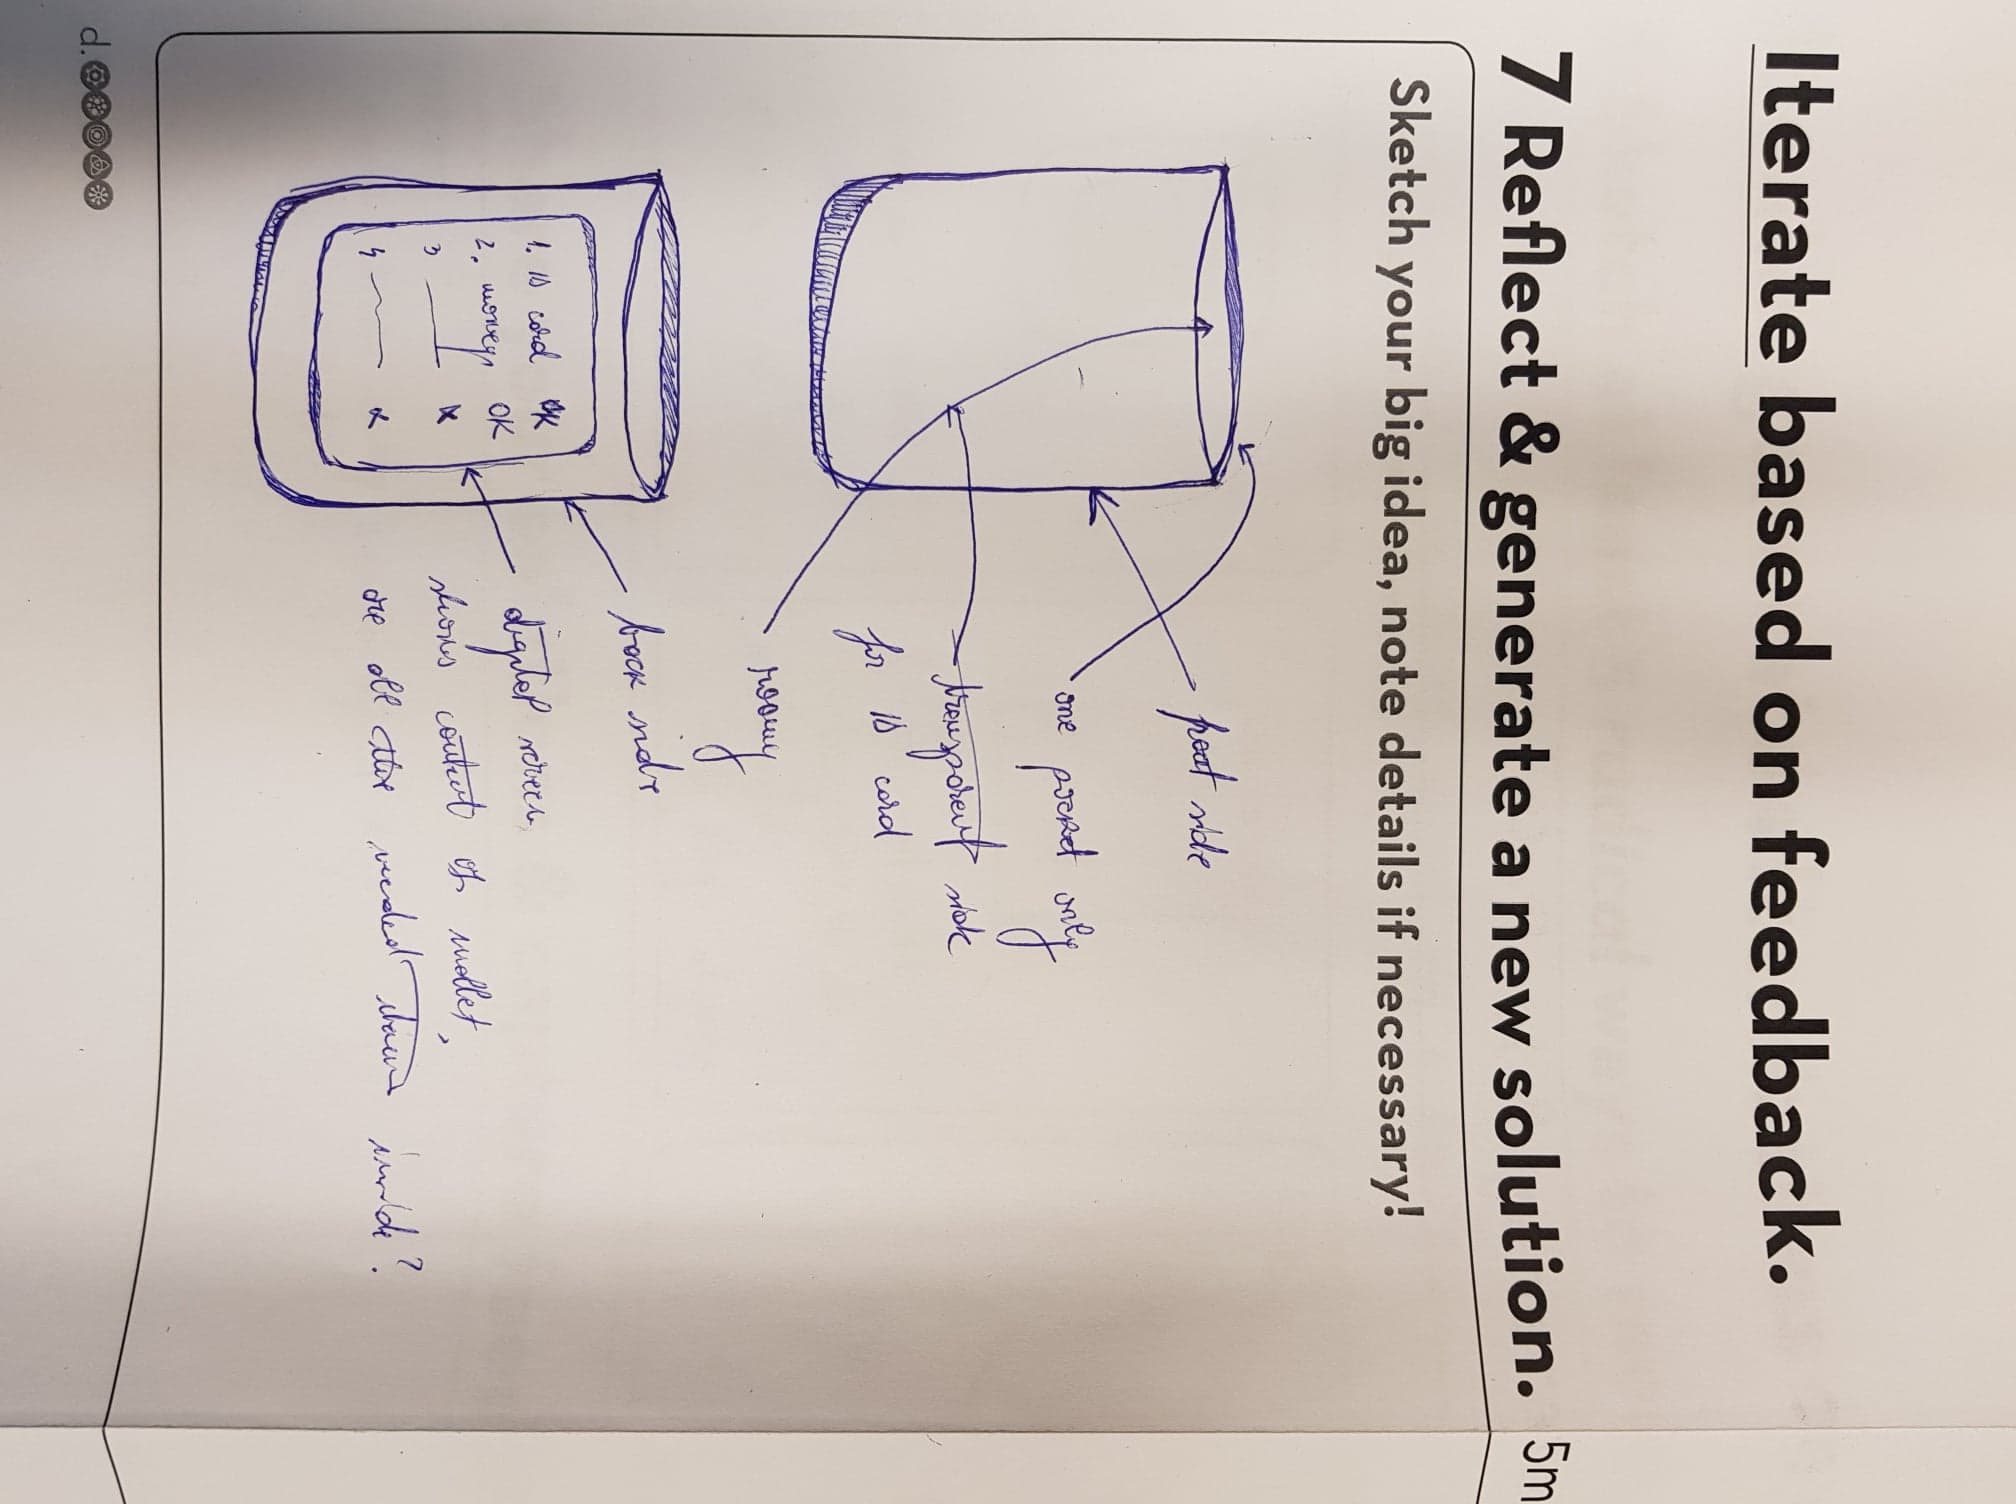 Iterate based on feedback.
7 Reflect & generate a new solution. 5m
Sketch your big idea, note details if necessary!
front side
one pocket only
transparent side
for ID card
roomy
back side
1. ID card OK
2. money OK
3 x
4 x
digital screen
shows content of wallet,
are all the needed items inside?
d.